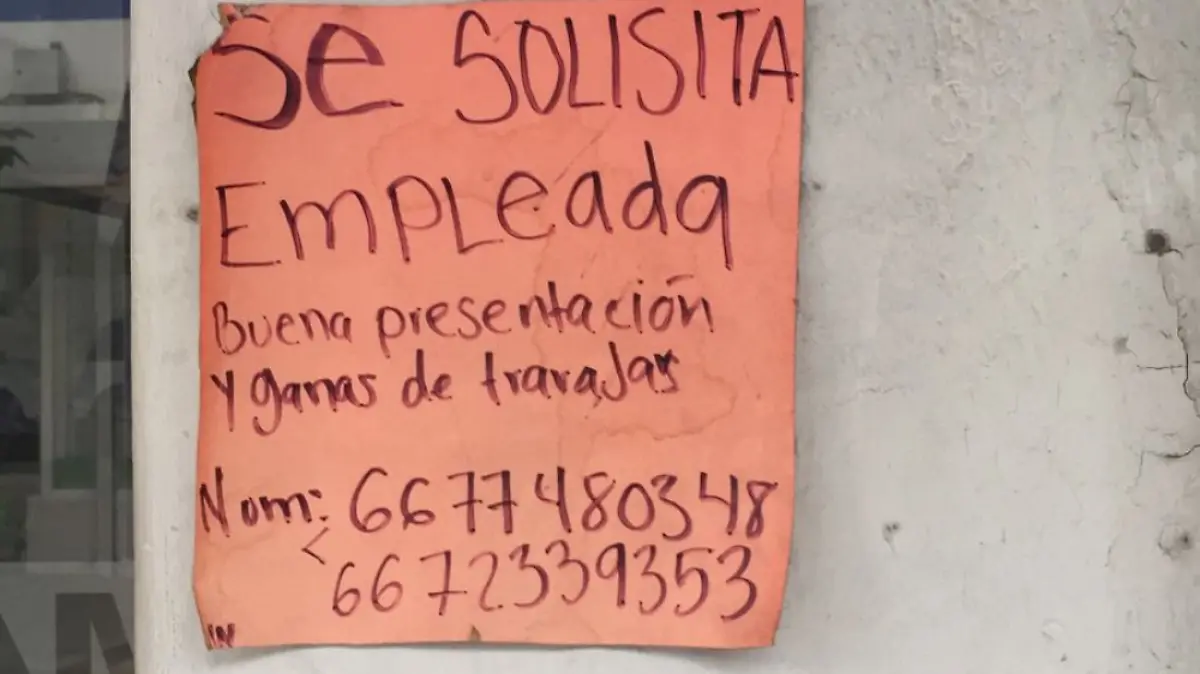 Se SOLISITA
EmPLeada
Buena presentación
y ganas de travaJar
Nom: 6677480348
6672339353